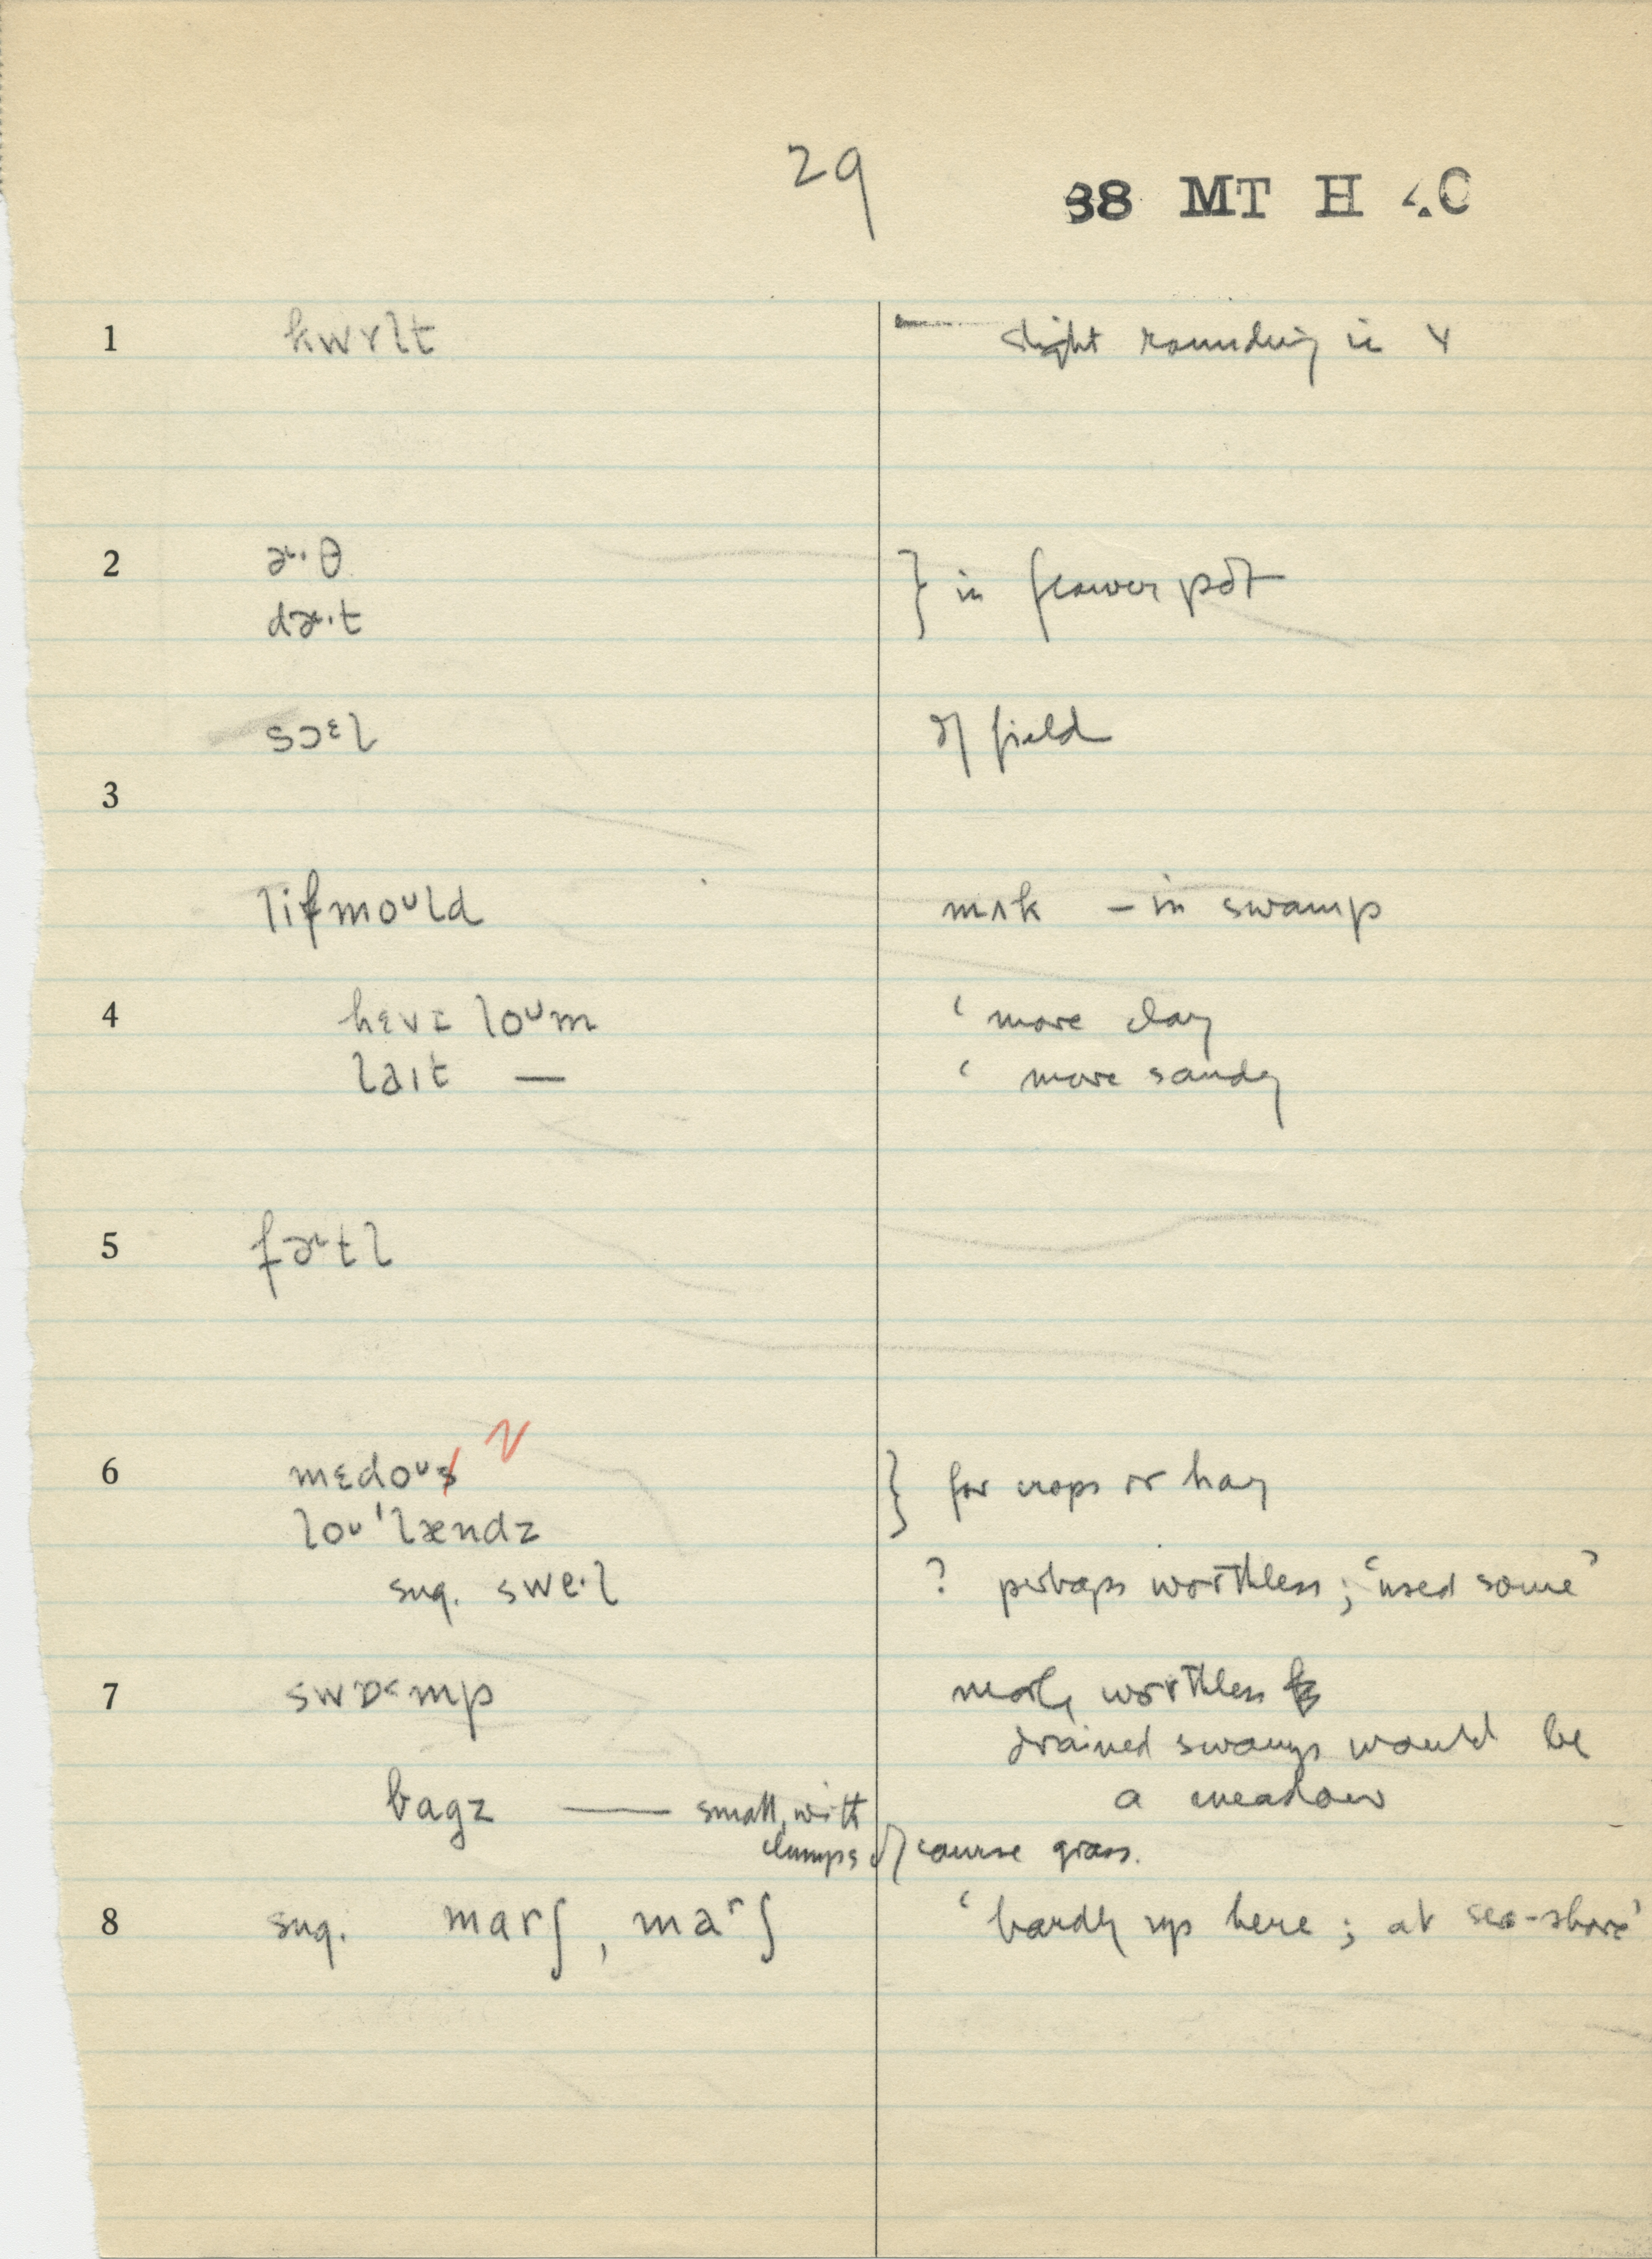 29
38 MT H 40
1 kwɤlt — slight rounding in ɤ
2 ɚ·θ } in flower pot
dɚ·t
sɔᵋl of field
3
lifmoᵁld mʌk – in swamp
4 hɛvɪ loᵁm ' more clay
laɪt — ' more sandy
5 fɚtl
6 mɛdoᵁs z } for crops or hay
loᵁ'lændz
sug. swe·l ? perhaps worthless; 'used some'
7 swɒ˂mp worthless
drained swamps would be
bagz — small, with a meadow
clumps of course grass.
8 sug. marʃ, maʳʃ 'hardly up here; at sea-shore'